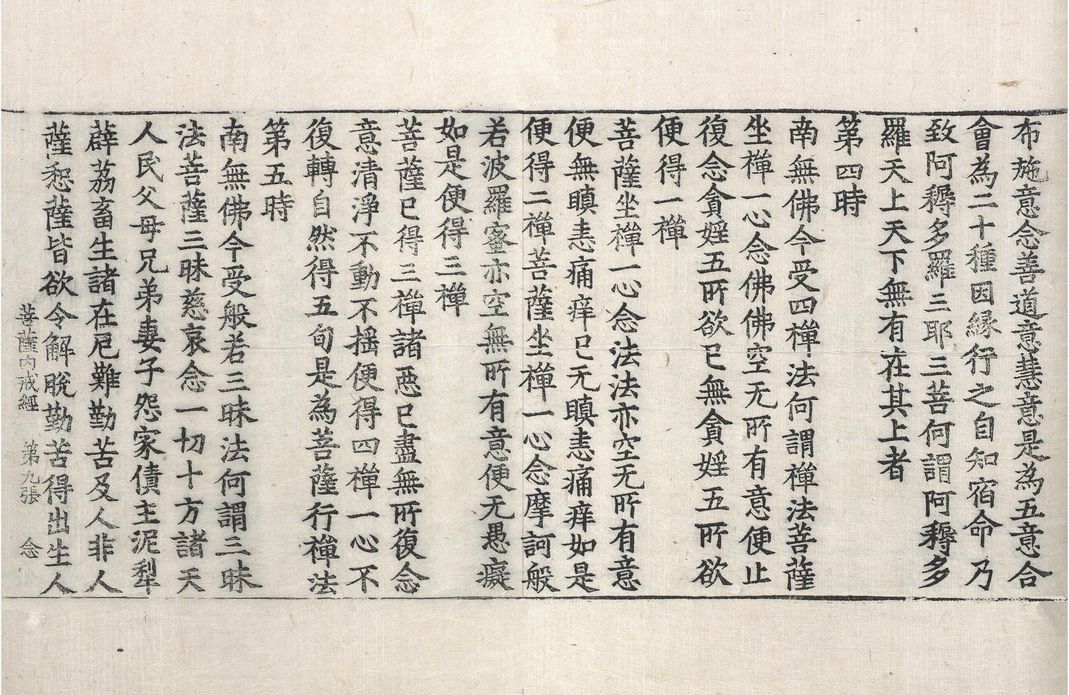 布施意念善道意慧意是為五意合
會為二十種因緣行之自知宿命乃
致阿耨多羅三耶三菩何謂阿耨多
羅天上天下無有在其上者
第四時
南無佛今受四禪法何謂禪法菩薩
坐禪一心念佛佛空无所有意便止
復念貪婬五所欲已無貪婬五所欲
便得一禪
菩薩坐禪一心念法法亦空无所有意
便無瞋恚痛痒已无瞋恚痛痒如是
便得二禪菩薩坐禪一心念摩訶般
若波羅蜜亦空無所有意便无愚癡
如是便得三禪
菩薩已得三禪諸惡已盡無所復念
意清淨不動不摇便得四禪一心不
復轉自然得五旬是為菩薩行禪法
第五時
南無佛今受般若三昧法何謂三昧
法菩薩三昧慈哀念一切十方諸天
人民父母兄弟妻子怨家債主泥犁
薜荔畜生諸在厄難勤苦及人非人
薩惒薩皆欲令解脫勤苦得出生人
菩薩內戒經 第九張 念